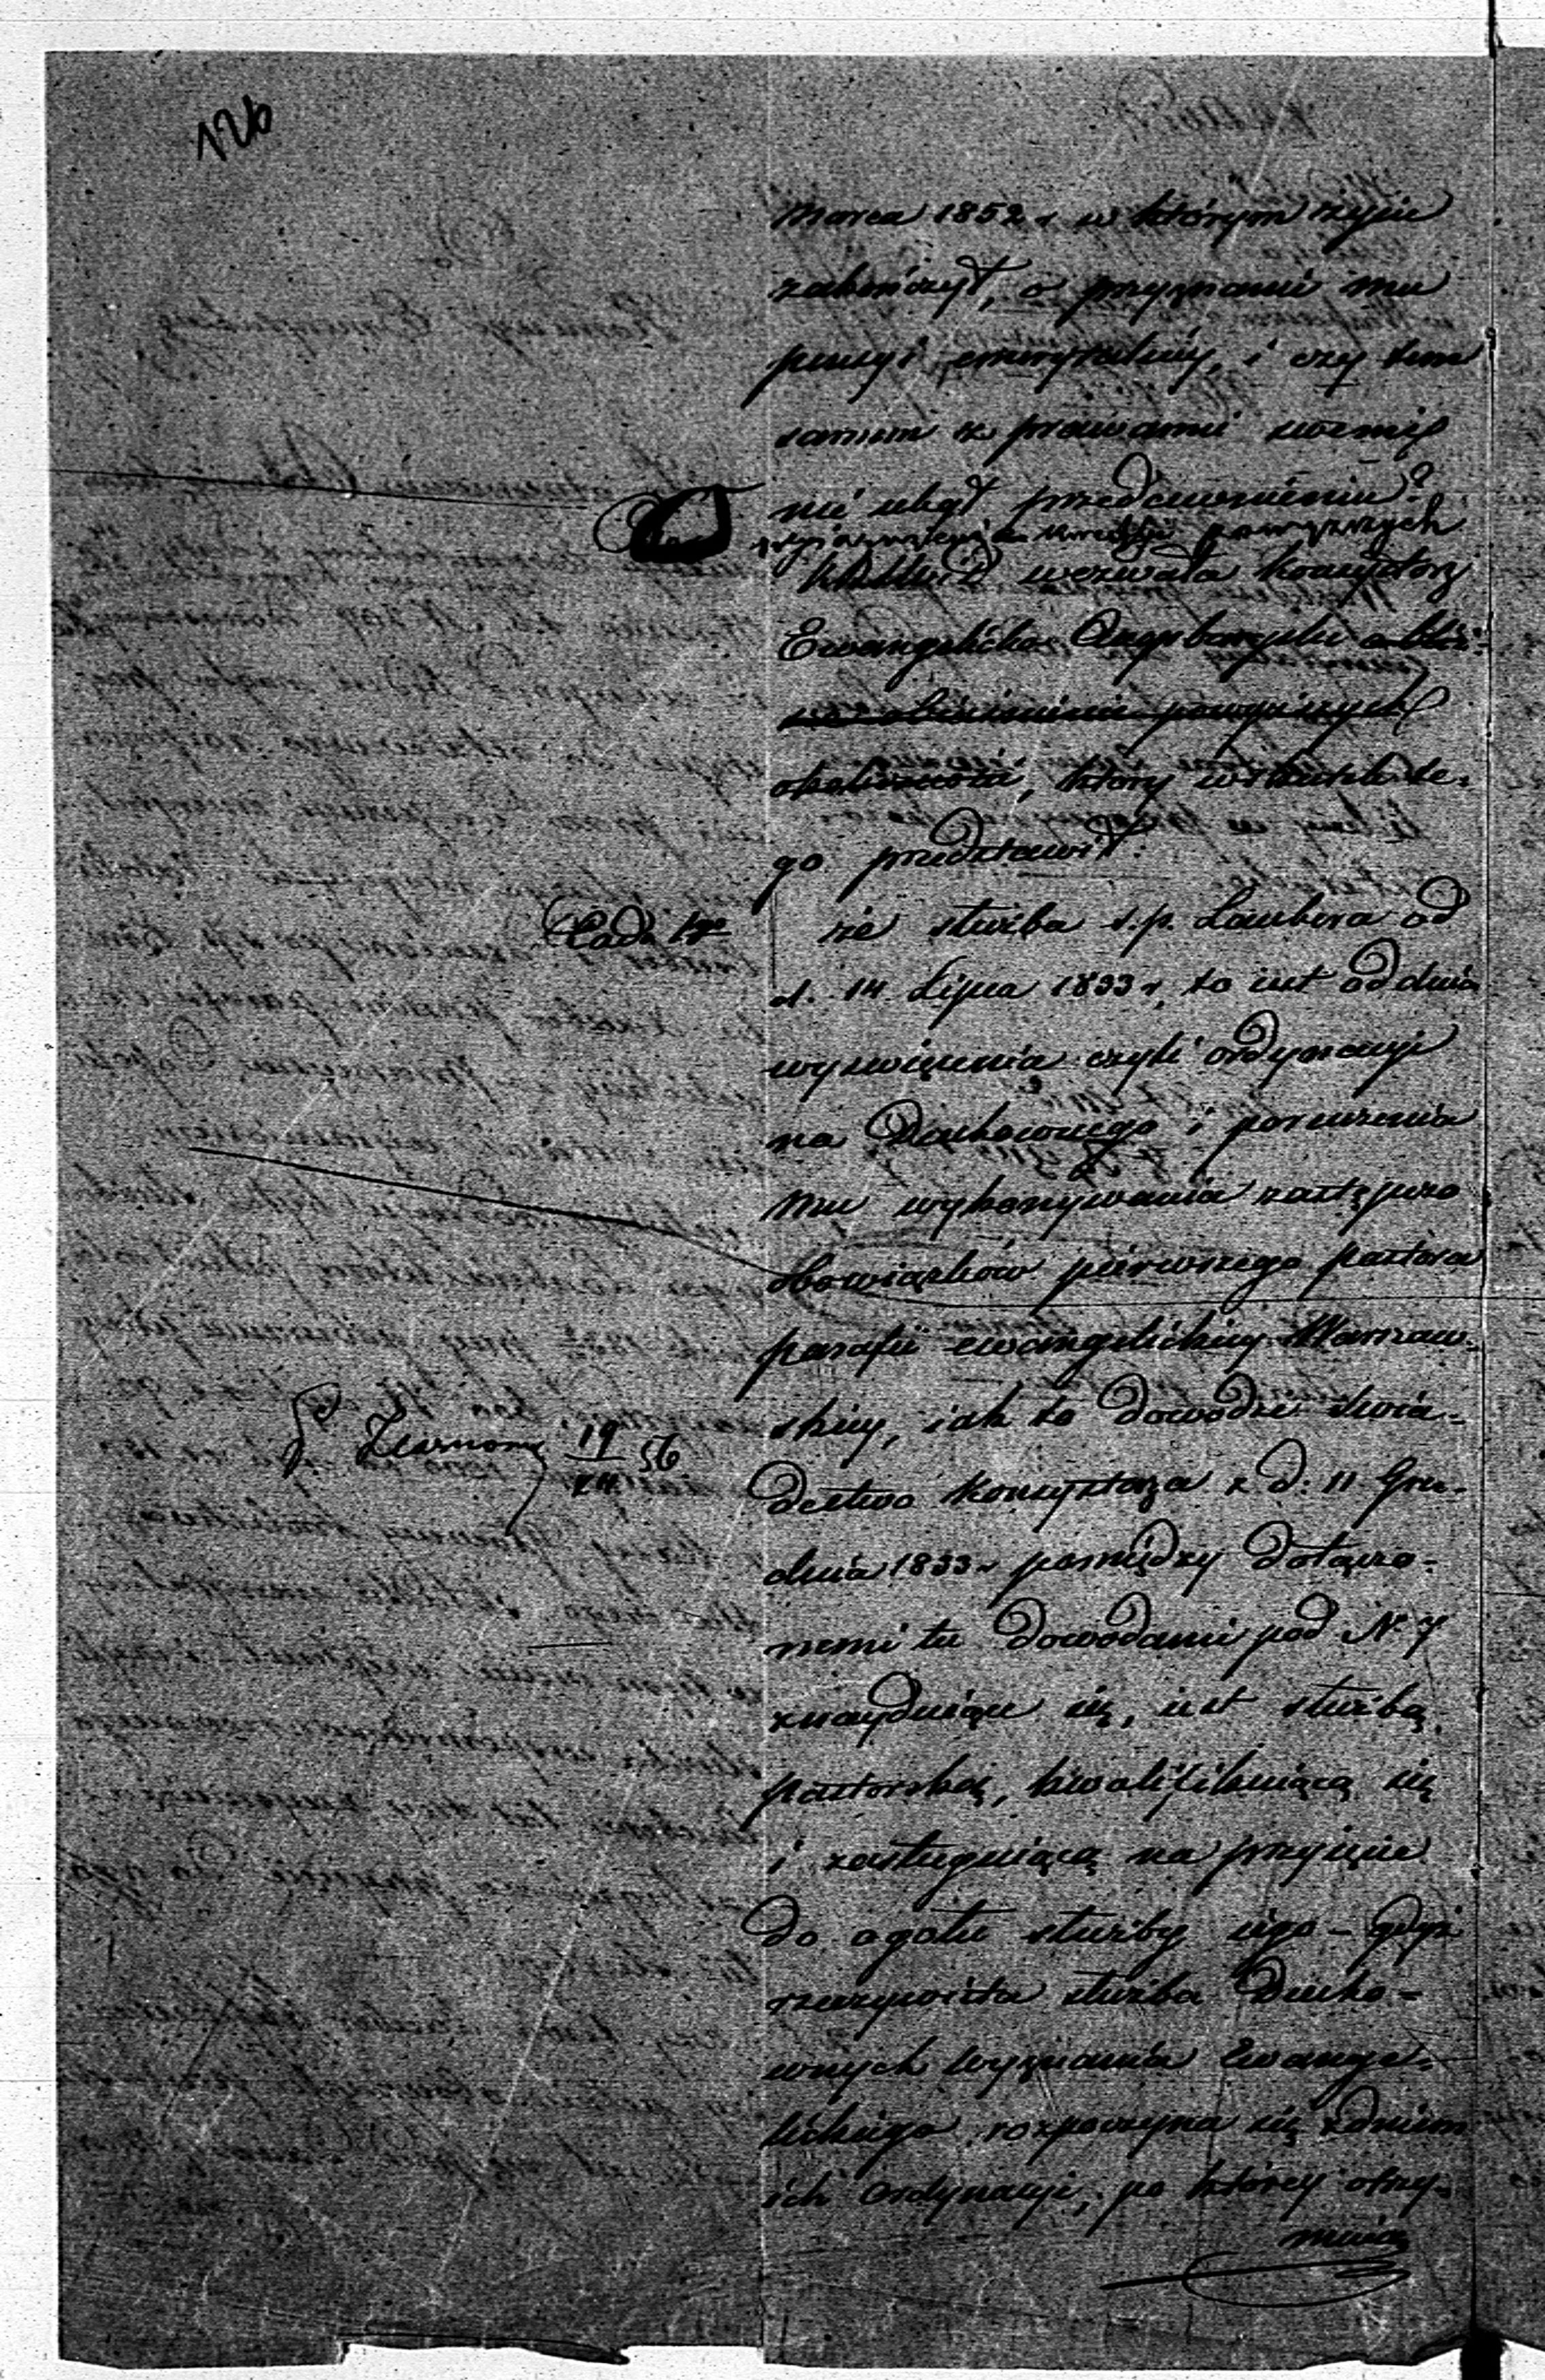 126
marca 1852 r. w którym życie
zakończył, o przyznanie mu
pensyi emerytalnéy, i czy tem
samem z prawami swemi
nie uległ przedawnieniu?
powyższych
wezwała Konsystorz
Ewangelicko Augsburgski
powyższych
okoliczności, który wskutek te-
go przedstawił:
ad 1mo
że służba s.p. Laubera od
d. 14 Lipca 1833 r, to iest od dnia
wyświęcenia czyli ordynacyi
na Duchownego i poruczenia
mu wykonywania zastępczo
obowiązków pierwszego pastora
parafii ewangelickiey Warszaw-
skiey, iak to dowodzi świa-
dectwo Konsystorza z d: 11 Gru-
dnia 1833 r pomiędzy dołączo-
nemi tu dowodami pod N 7
znayduiące się, iest służbą
pastorską, kwalifikuiącą się
i zasługuiącą na przyięcie
do ogółu służby iego – gdyż
rzeczywista służba Ducho-
wnych wyznania Ewange-
lickiego rozpoczyna się z dniem
ich Ordynacyi, po którey otrzy-
muią
19
56